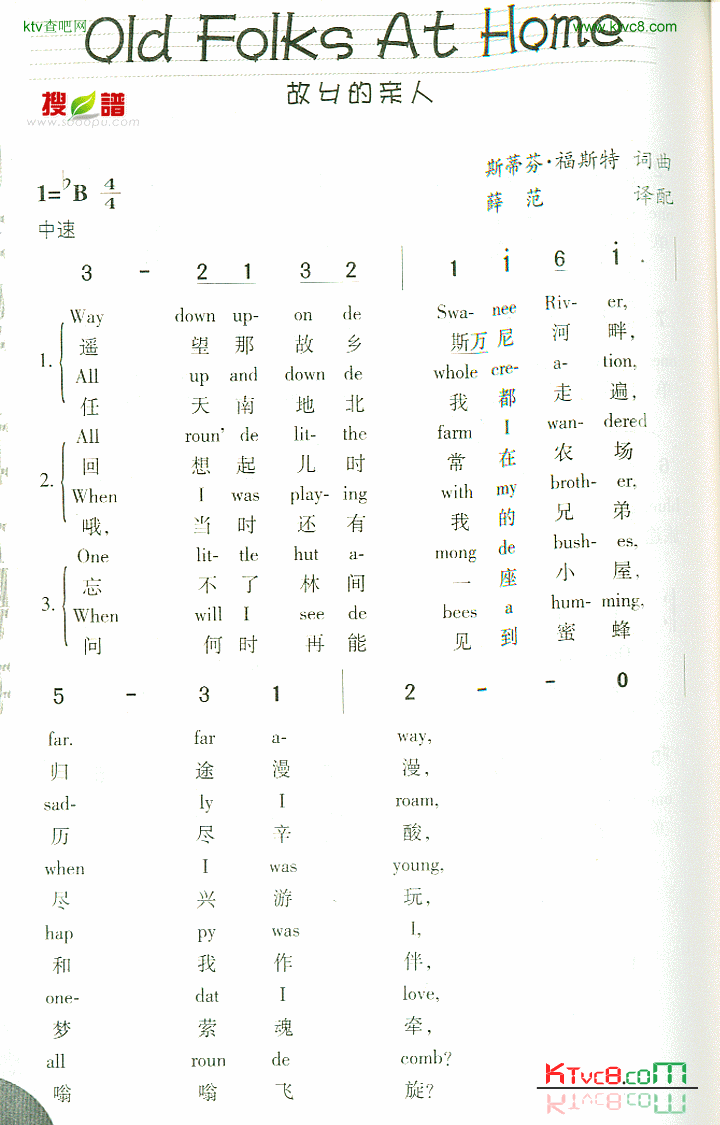 ktv查吧网
www.ktvc8.com
Old Folks At Home
故乡的亲人
搜谱
www.sooopu.com
斯蒂芬·福斯特 词曲
1=♭B 4/4
薛 范 译配
中速
3 - 2 1 3 2 | 1 i 6 i .
Way down up- on de Swa- nee Riv- er,
1. 遥 望 那 故 乡 斯万 尼 河 畔,
All up and down de whole cre- a- tion,
任 天 南 地 北 我 都 走 遍,
All roun' de lit- the farm I wan- dered
2. 回 想 起 儿 时 常 在 农 场
When I was play- ing with my broth- er,
哦, 当 时 还 有 我 的 兄 弟
One lit- tle hut a- mong de bush- es,
3. 忘 不 了 林 间 一 座 小 屋,
When will I see de bees a hum- ming,
问 何 时 再 能 见 到 蜜 蜂
5 - 3 1 | 2 - - 0
far. far a- way,
归 途 漫 漫,
sad- ly I roam,
历 尽 辛 酸,
when I was young,
尽 兴 游 玩,
hap py was I,
和 我 作 伴,
one- dat I love,
梦 萦 魂 牵,
all roun de comb?
嗡 嗡 飞 旋?
KTvc8.com